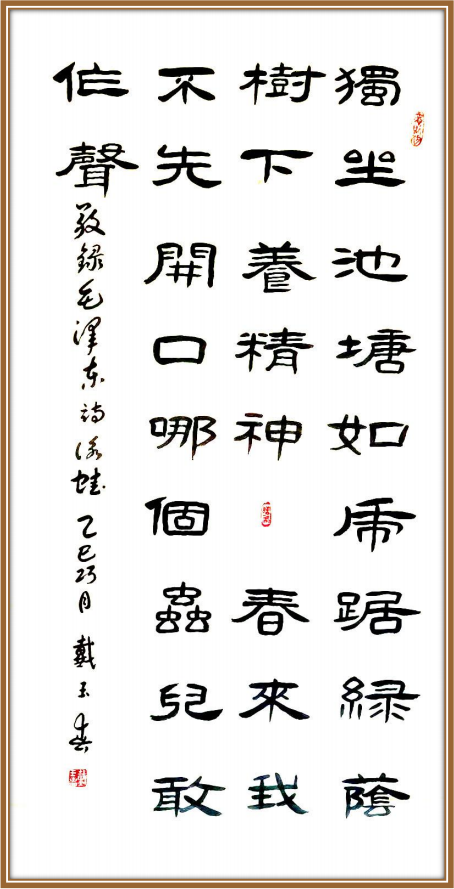 獨坐池塘如虎踞綠蔭
樹下養精神春來我
不先開口哪個蟲兒敢
作聲
敬録毛澤东詩詠蛙 乙巳巧月 戴玉春